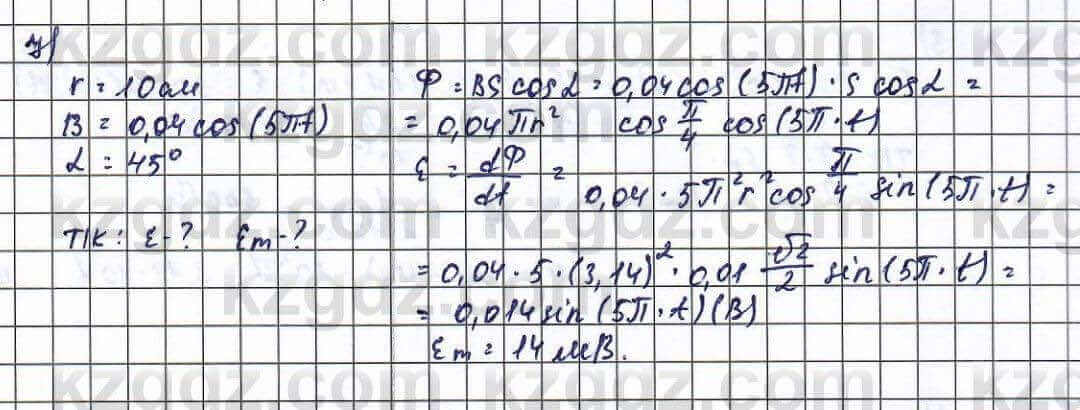 7)
r = 10 см
B = 0,04 cos(5πt)
α = 45°
Т/К: ε-? εm-?
Ф = BS cos α = 0,04 cos(5πt) · S cos α =
= 0,04 πr² cos π/4 cos(5π·t)
ε = dФ/dt = 0,04 · 5π²r² cos π/4 sin(5π·t) =
= 0,04 · 5 · (3,14)² · 0,01 √2/2 sin(5π·t) =
= 0,014 sin(5π·t) (В)
εm = 14 мВ.
kzgdz.com